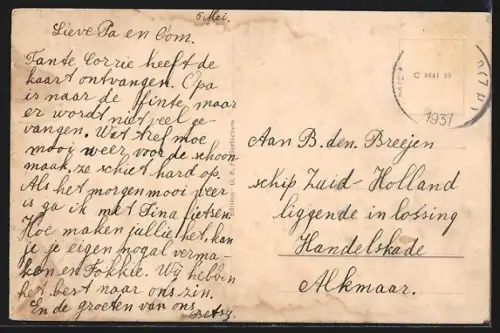 5 Mei.
Lieve Pa en Com.
Tante Corrie heeft de
kaart ontvangen. Opa
is naar de Finte, maar
er wordt niet veel ge
vangen. Wat tref moe
mooi weer voor de schoon
maak, ze schiet hard op.
Als het morgen mooi weer
is ga ik met Tina fietsen.
Hoe maken jullie het, kan
je je eigen nogal verma-
ken en Fokkie. Wij hebben
het best naar ons zin.
En de groeten van ons
Betsy.
1937
Aan B. den. Breejen
schip Zuid-Holland
liggende in lossing
Handelskade
Alkmaar.